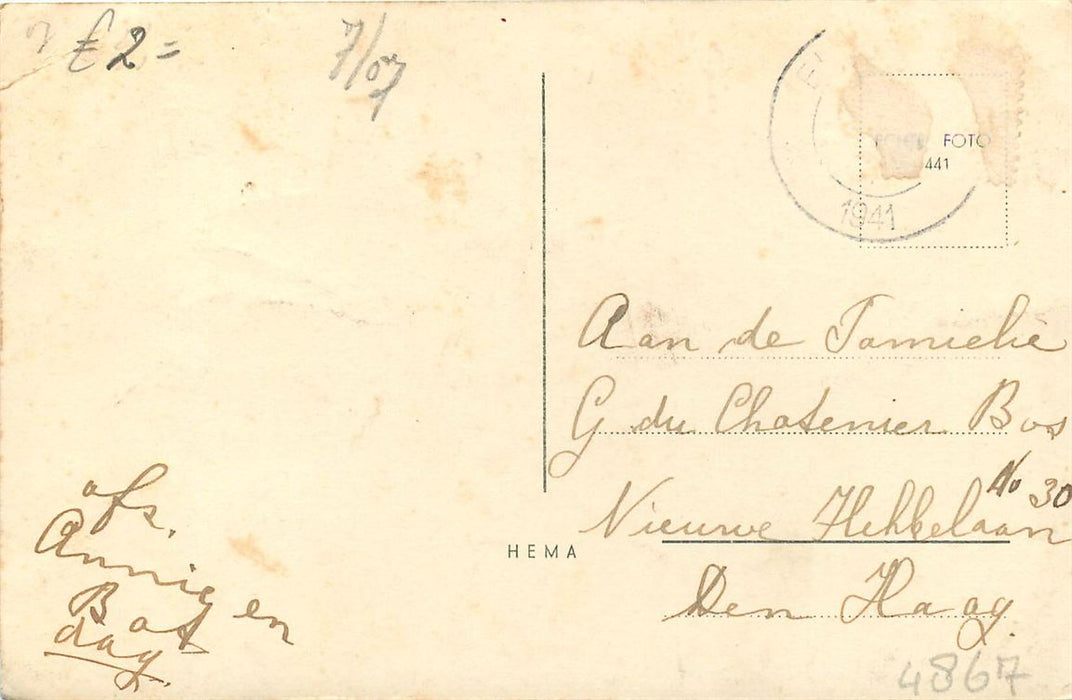 € 2 =
7/07
1941
ECHTE FOTO
441
Aan de Familie
G du Chatenier Bos
No 30
Nieuwe Hekkelaan
Den Haag.
HEMA
afs.
Annie en
Bas
dag.
4867